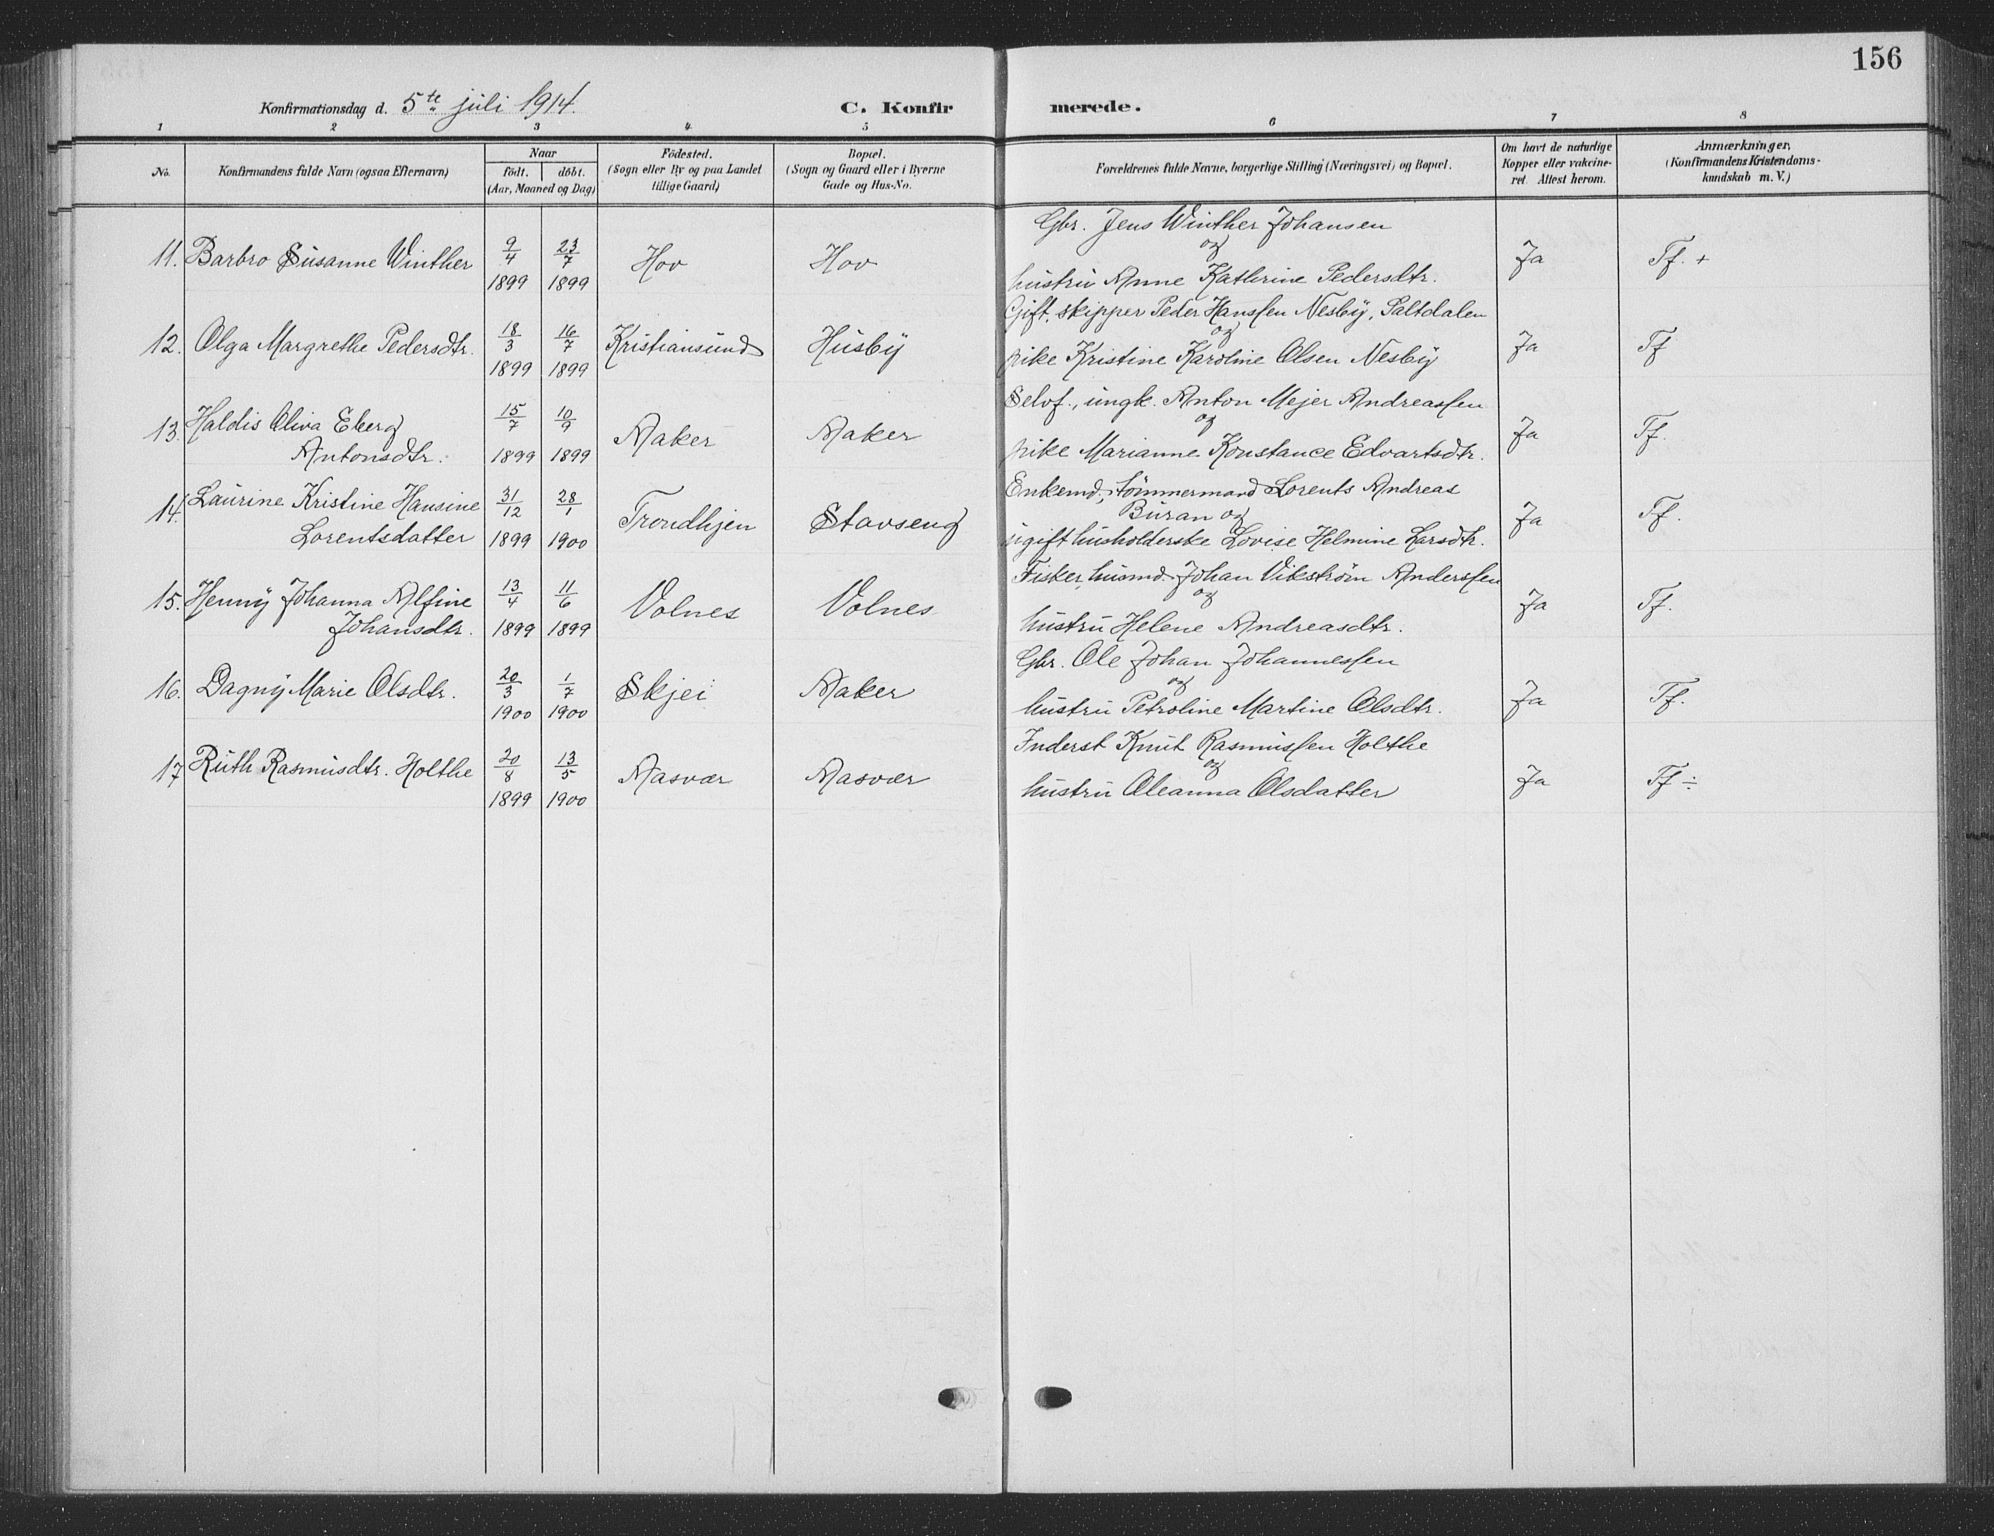 156
Konfirmationsdag d. 5te juli 1914.
C. Konfirmerede.
1 2 3 4 5 6 7 8
No.
Konfirmandens fulde Navn (ogsaa Efternavn)
Naar
födt. döbt.
(Aar, Maaned og Dag)
Födested.
(Sogn eller By og paa Landet
tillige Gaard)
Bopæl.
(Sogn og Gaard eller i Byerne
Gade og Hus-No.
Forældrenes fulde Navne, borgerlige Stilling (Næringsvei) og Bopæl.
Om havt de naturlige
Kopper eller vakcine-
ret. Attest herom.
Anmærkninger,
(Konfirmandens Kristendoms-
kundskab m. V.)
11. Barbro Susanne Winther 9/4 1899 23/7 1899 Hov Hov
Gbr. Jens Winther Johansen
og
hustru Anne Kathrine Pedersdtr. Ja Tf. +
12. Olga Margrethe Pedersdtr. 18/3 1899 16/7 1899 Kristiansund Husby
Gift. skipper Peder Hanssen Nesby, Saltdalen
og
pike Kristine Karoline Olsen Nesby Ja Tf
13. Haldis Oliva Eberg
Antonsdtr. 15/7 1899 10/9 1899 Aaker Aaker
Selvf., ungk. Anton Mejer Andreassen
og
pike Marianne Konstance Edvartsdtr. Ja Tf.
14. Laurine Kristine Hansine
Lorentsdatter 31/12 1899 28/1 1900 Trondhjen Stavseng
Enkemd., tømmermand Lorents Andreas
Buran og
ugift husholderske Lovise Helmine Larsdtr. Ja Tf.
15. Henny Johanna Alfine
Johansdtr. 13/4 1899 11/6 1899 Volnes Volnes
Fisker, husmd. Johan Vikstrøm Anderssen
og
hustru Helene Andreasdtr. Ja Tf.
16. Dagny Marie Olsdtr. 20/3 1900 1/7 1900 Skjei Aaker
Gbr. Ole Johan Johannessen
og
hustru Petroline Martine Olsdtr. Ja Tf.
17 Ruth Rasmusdtr. Holthe 20/8 1899 13/5 1900 Aasvær Aasvær
Inderst Knut Rasmussen Holthe
og
hustru Oleanna Olsdatter Ja Tf ÷